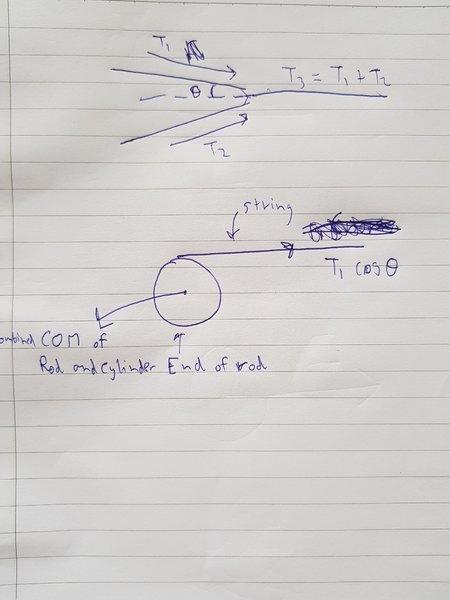 T₁
T₃ = T₁ + T₂
θ
T₂
string
T₁ cosθ
COM of
Rod and cylinder
End of rod